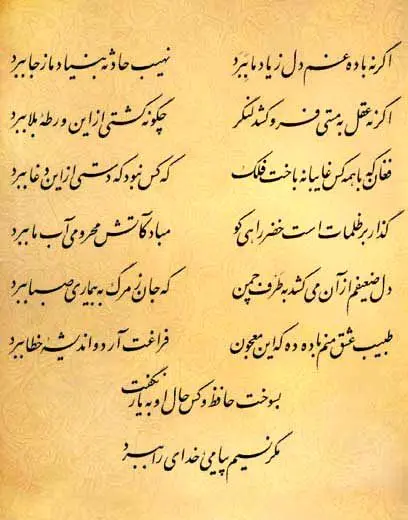 اگر نه باده غم دل ز یاد ما ببرد نهیب حادثه بنیاد ما ز جا ببرد
اگر نه عقل به مستی فرو کشد لنگر چگونه کشتی از این ورطهٔ بلا ببرد
فغان که با همه کس غایبانه باخت فلک که کس نبود که دستی از این دغا ببرد
گذار بر ظلمات است خضر راهی کو مباد کآتش محرومی آب ما ببرد
دل ضعیفم از آن می کشد به طرف چمن که جان ز مرگ به بیماری صبا ببرد
طبیب عشق منم باده ده که این معجون فراغت آرد و اندیشهٔ خطا ببرد
بسوخت حافظ و کس حال او به یار نگفت
مگر نسیم پیامی خدای را ببرد